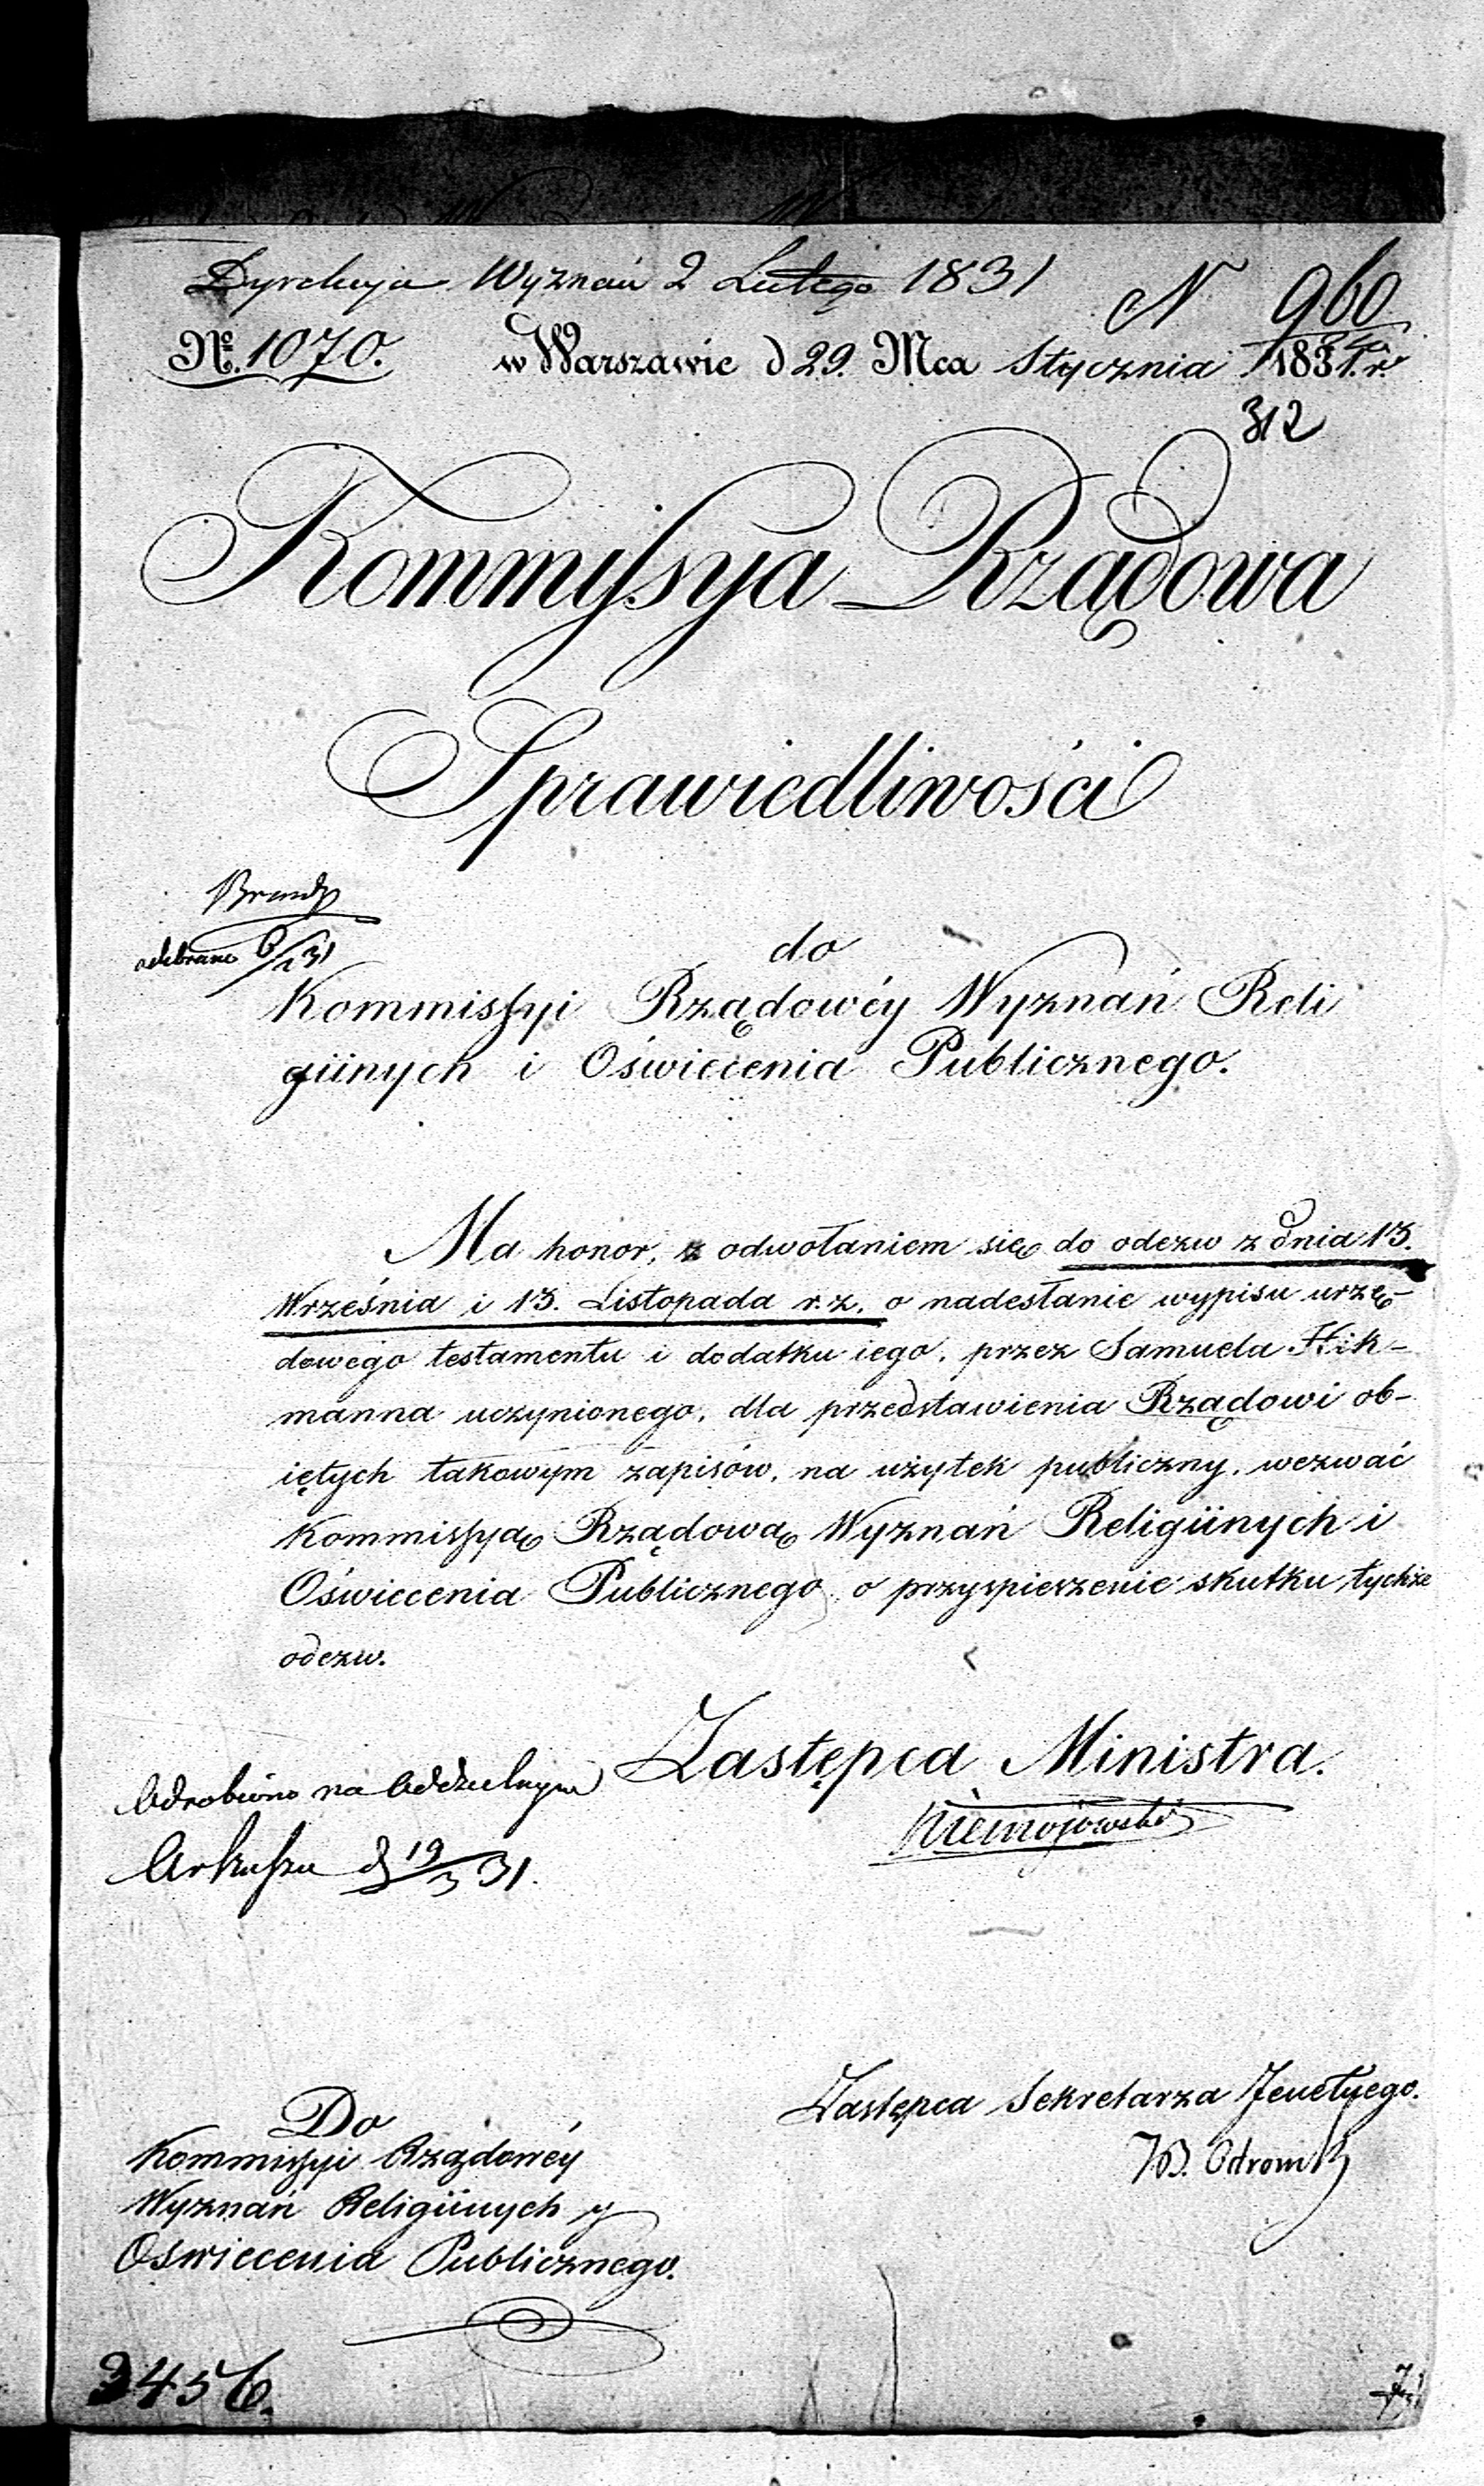 Dyrekcyja Wyznań 2 Lutego 1831
N 960
No. 1070. w Warszawie d 29. Mca Stycznia 1831. r.
312
Kommyssya Rządowa
Sprawiedliwości
odebrane 6/2 31
do
Kommissyi Rządowéy Wyznań Reli
giinych i Oświecenia Publicznego.
Ma honor, z odwołaniem się do odezw z dnia 13.
Września i 13. Listopada r. z. o nadesłanie wypisu urzę-
dowego testamentu i dodatku iego, przez Samuela Hik-
manna uczynionego, dla przedstawienia Rządowi ob-
iętych takowym zapisów, na użytek publiczny, wezwać
Kommissyą Rządową Wyznań Religiinych i
Oświecenia Publicznego, o przyspieszenie skutku tychże
odezw.
Zastępca Ministra.
Niemojowski
Odrobiono na Oddzielnym
Arkuszu d 19/3 31.
Zastępca Sekretarza Jenełnego.
Do
Kommissyi Rządowéy
Wyznań Religiinych y
Oświecenia Publicznego.
3456.